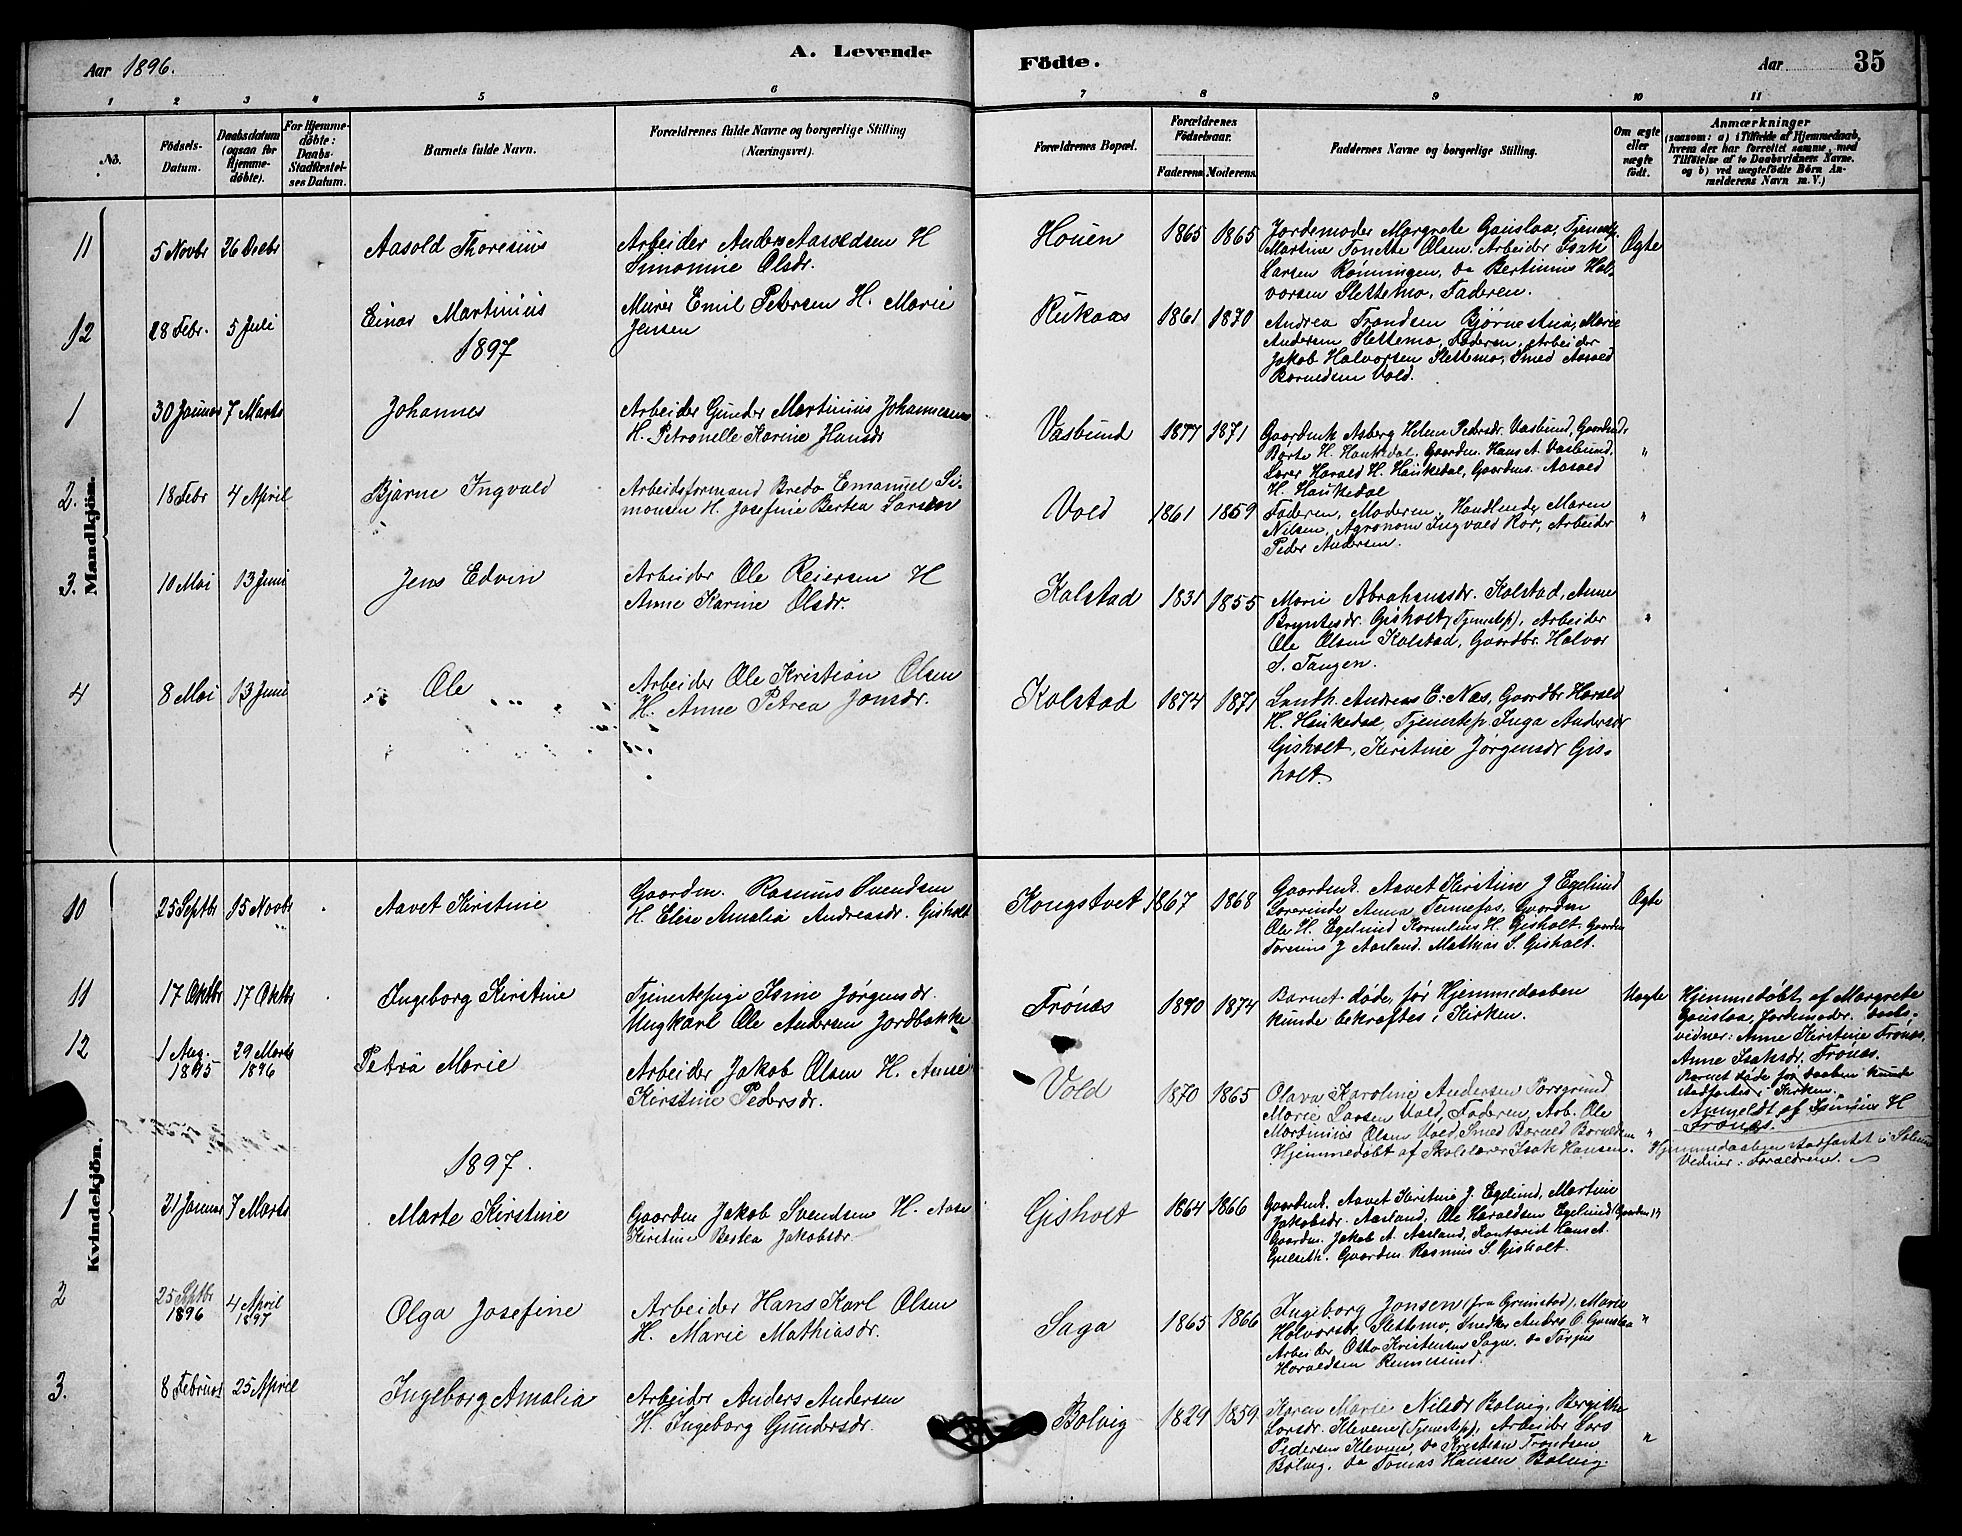 Aar 1896.
A. Levende
Födte.
Aar
35
1 2 3 4 5 6 7 8 9 10 11
No.
Födsels-Datum.
Daabsdatum (ogsaa for Hjemme-döbte).
For Hjemme-döbte: Daabs-Stadfæstel-ses Datum.
Barnets fulde Navn.
Forældrenes fulde Navne og borgerlige Stilling (Næringsvei).
Forældrenes Bopæl.
Forældrenes Födselsaar.
Faderens Moderens
Faddernes Navne og borgerlige Stilling.
Om ægte eller uægte födt.
Anmærkninger
(saasom: a) i Tilfælde af Hjemmedaab, hvem der har forrettet samme, med Tilföielse af to Daabsvidners Navne. og b) ved uægtefödte Börn An-melderens Navn m. V.)
Mandkjön.
11
5 Novbr
26 Decbr
Aasold Thoresius
Arbeider Anders Aasoldsen H
Simonine Olsdr.
Houen
1865
1865
Jordemoder Margrete Gauslaa, Tjenestp.
Martine Tonette Olsen. Arbeider Isak
Larsen Rönningen, do Bertinius Hal-
vorsen Slettemo, Faderen.
Ægte
12
28 Febr.
5 Juli
Einar Martinius
Murer Emil Petersen H. Marie
Jensen
Rukaas
1861
1870
Andrea Trondsen Bjørnestua, Marie
Andersen Slettemo, Faderen, Arbeider
Jakob Halvorsen Slettemo, Smed Aasold
Vold.
1897
1
30 Januar
7 Marts
Johannes
Arbeider Gunder Martinius Johannesen
H. Petronelle Karine Hansdr
Vasbund
1877
1871
Gaardmk Asberg Helene Pedersdr. Vasbund, Gaardmd.
Børte H. Haukedal, Gaardm. Hans A. Vasbund,
Lærer Harald H. Haukedal, Gaardms. Aasold
H. Haukedal
"
2.
18 Febr
4 April
Bjarne Ingvald
Arbeidsformand Bredo Emanuel Si-
monsen H. Josefine Bertea Larsen
Vold
1861
1859
Faderen, Moderen, Handlende Maren
Nilsen, Agronom Ingvald Ror, Arbeider
Peder Andersen.
"
3.
10 Mai
13 Juni
Jens Edvin
Arbeider Ole Reiersen H
Anne Karine Olsdr.
Kolstad
1831
1855
Marie Abrahamsdr. Kolstad, Anne
Bryntesdr. Gisholt (Tjenestep), Arbeider
Ole Olsen Kolstad, Gaardbr. Halvor
S. Tangen.
"
4
8 Mai
13 Juni
Ole
Arbeider Ole Kristian Olsen
H. Anne Petrea Jonsdr.
Kolstad
1874
1871
Landh. Andreas E. Næs, Gaardbr Harald
H. Haukedal, Tjenestep. Inga Andersdr
Gisholt, Kirstine Jørgensdr Gis-
holt.
Kvindekjön.
10
25 Septbr
15 Novbr
Aavet Kirstine
Gaardm. Rasmus Svendsen
H. Elise Amalia Andreasdr. Gisholt
Kongstvet
1867
1868
Gaardmd. Aavet Kirstine J Egelund
Lærerinde Anna Tennefos, Gaardm
Ole H. Egelund Kornelius H. Gisholt. Gaardm
Toresius J Aasland. Mathias S. Gisholt.
Ægte
11
17 Oktbr
17 Oktbr
Ingeborg Kirstine
Tjenestepige Isine Jørgensdr.
Ungkarl Ole Andersen Jordbakke
Frónæs
1870
1874
Barnet døde før Hjemmedaaben
kunde bekræftes i Kirken.
Uægte
Hjemmedøbt af Margrete
Gauslaa, Jordemoder. Daabs-
vidner: Anne Kirstine Fronæs,
Anne Isaksdr. Fronæs.
Barnet døde før Daaben kunde
stadfæstes i Kirken.
Anmeldt af H
Fronæs.
12
1 Aug.
1895
29 Marts
1896
Petra Marie
Arbeider Jakob Olsen H. Anne
Kirstine Pedersdr.
Vold
1870
1865
Olava Karoline Andersen Porsgrund
Marie Larsen Vold, Faderen, Arb. Ole
Martinius Olsen Vold, Smed
Hjemmedøbt af Skolelærer Isak Hansen.
"
Hjemmedaaben stadfæstet i
Vidner: Forældrene.
1897.
1
21 Januar
7 Marts
Marte Kirstine
Gaardm Jakob Svendsen H. Aase
Kirstine Bertea Jakobsdr.
Gisholt
1864
1866
Gaardmd. Aavet Kirstine J. Egelund, Martine
Jakobsdr. Aasland, Ole Haraldsen Egelund (Gaardm)
Gaardm. Jakob A. Aasland, Kontorist Hans A.
Gaardm Rasmus S. Gisholt.
"
2
25 Septbr
1896
4 April
1897
Olga Josefine
Arbeider Hans Karl Olsen
H. Marie Mathiasdr.
Saga
1865
1866
Ingeborg Jonsen (fra Grimstad), Maria
Halvorsdr. Slettemo, Snedker Anders O. Gauslaa
Arbeider Otto Kristensen Saga. do Torjus
Haraldsen
"
3.
8 Februar
25 April
Ingeborg Amalia
Arbeider Anders Andersen
H. Ingeborg Gundersdr.
Bolvig
1829
1859
Karen Marie Nilsdr Bolvig, Bergithe
Larsdr. Kleven (Tjenestep), Arbeider Lars
Pedersen Kleven, do Kristian Trondsen
Bolvig, do Tomas Hansen Bolvig.
"